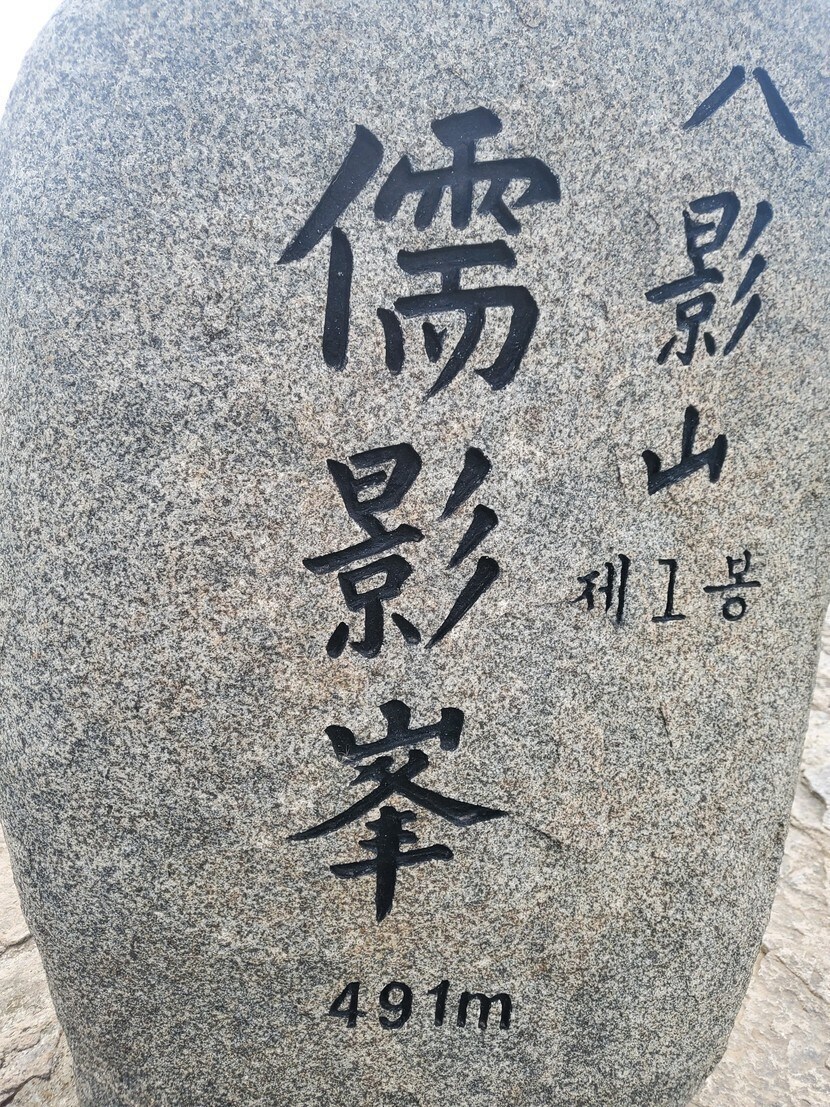 八影山
제1봉
儒影峯
491m